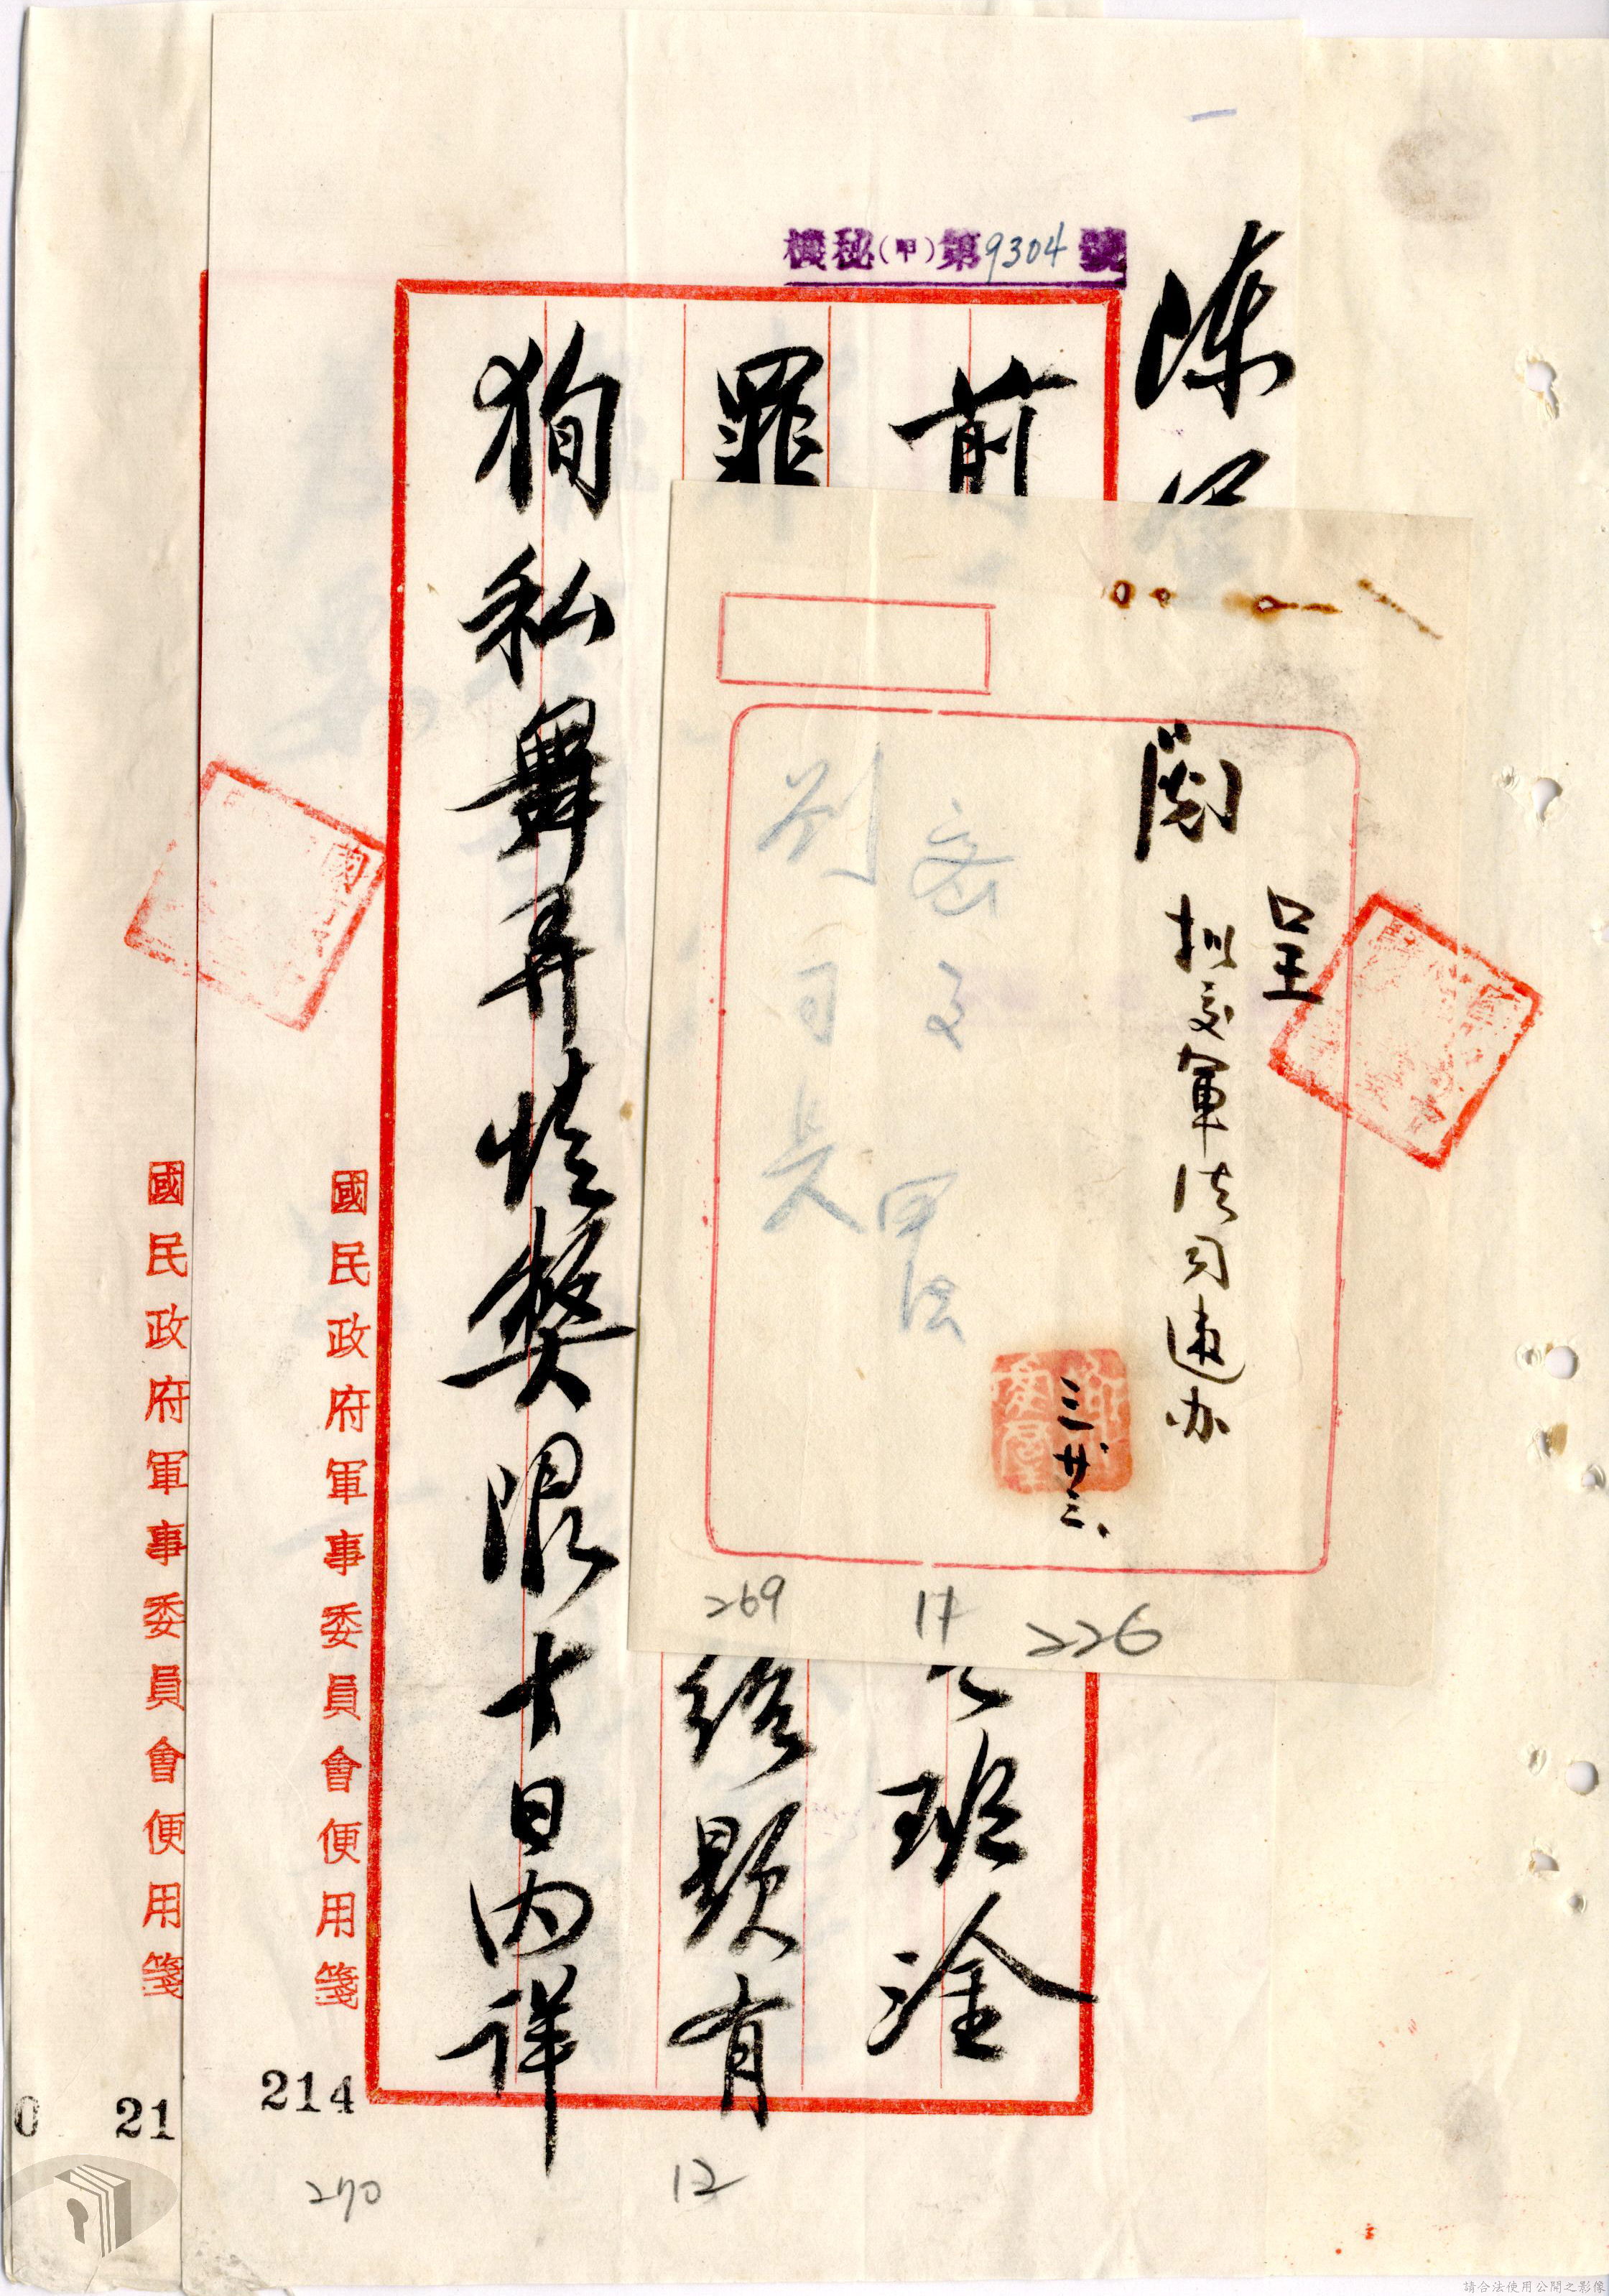 機秘(甲)第9304號
陳
前
班淦
罪
給題有
狥私舞弄情弊限十日內詳
閱
呈
擬交軍法司遵办
三廿三、
密交
軍法
劉司長
國民政府軍事委員會便用箋
國民政府軍事委員會便用箋
269
17
226
214
21
0
270
12
請合法使用公開之影像